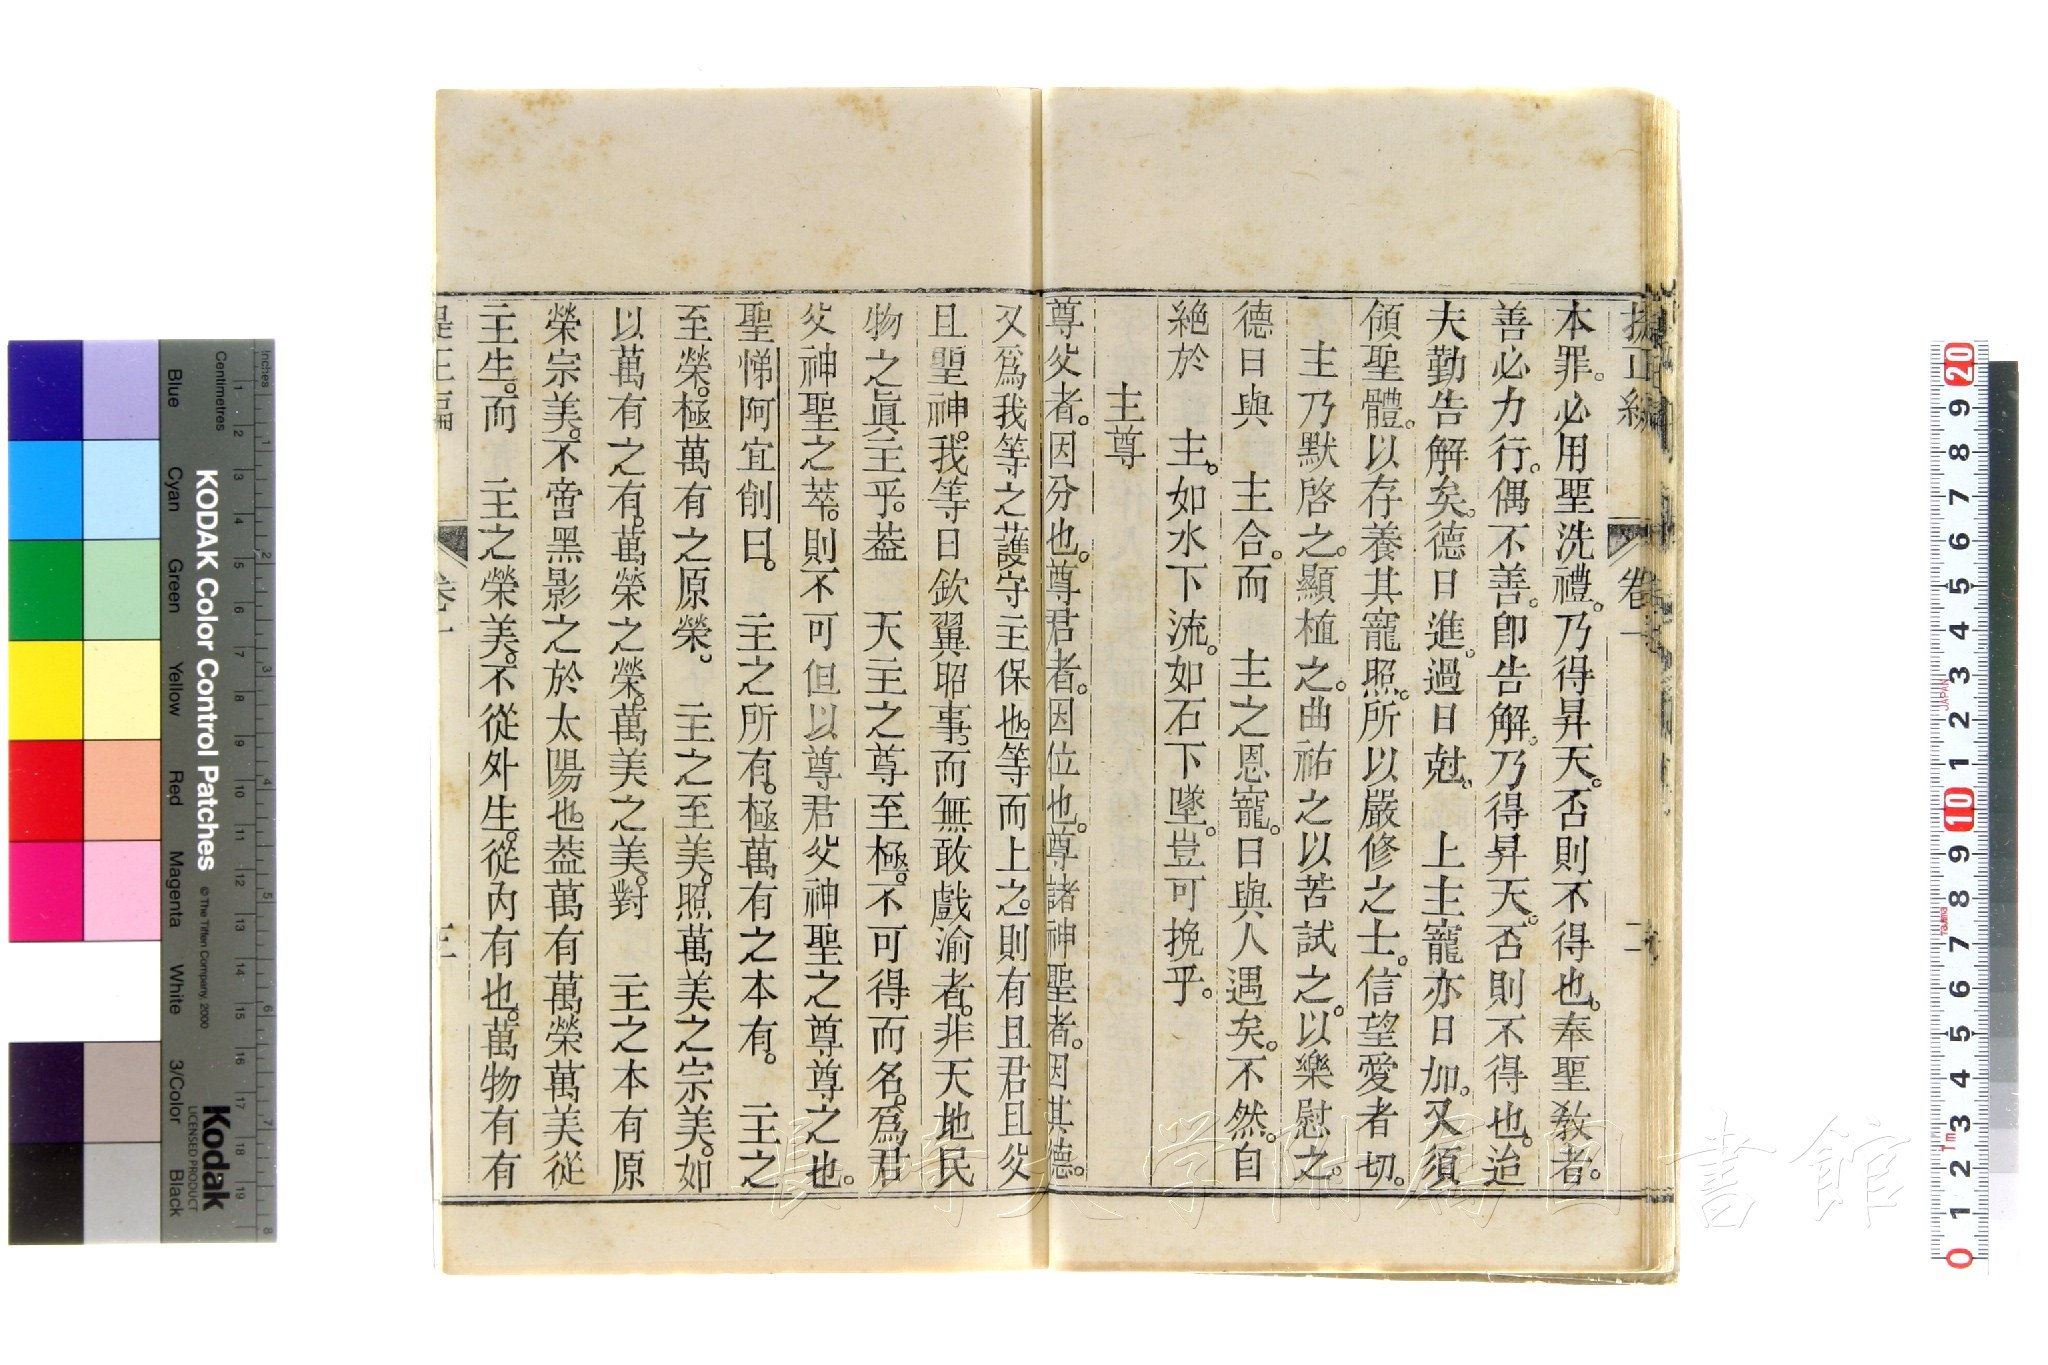 提正編 卷一 二
本罪。必用聖洗禮。乃得昇天。否則不得也。奉聖教者。
善必力行。偶不善。卽告解。乃得昇天。否則不得也。迨
夫勤告解矣。德日進。過日尅。 上主寵亦日加。又須
領聖體。以存養其寵照。所以嚴修之士。信望愛者切。
主乃默啓之。顯植之。曲祐之以苦試之。以樂慰之。
德日與 主合。而 主之恩寵。日與人遇矣。不然。自
絶於 主。如水下流。如石下墜。豈可挽乎。
主尊
尊父者。因分也。尊君者。因位也。尊諸神聖者。因其德。
又爲我等之護守主保也。等而上之。則有且君且父
且聖神。我等日欽翼昭事。而無敢戲渝者。非天地民
物之眞主乎。葢 天主之尊至極。不可得而名。爲君
父神聖之萃。則不可但以尊君父神聖之尊尊之也。
聖悌阿宜削曰。 主之所有。極萬有之本有。 主之
至榮。極萬有之原榮。 主之至美。照萬美之宗美。如
以萬有之有。萬榮之榮。萬美之美。對 主之本有原
榮宗美。不啻黑影之於太陽也。葢萬有萬榮萬美從
主生。而 主之榮美。不從外生。從內有也。萬物有有
提正編 卷一 三
KODAK Color Control Patches
© The Tiffen Company, 2000
Kodak
LICENSED PRODUCT
Inches
Centimetres
Blue
Cyan
Green
Yellow
Red
Magenta
White
3/Color
Black
JAPAN
長崎大学附属図書館